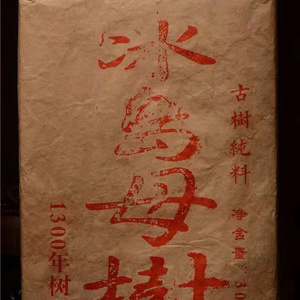 冰島母樹
古樹純料 净含量:30
1300年树